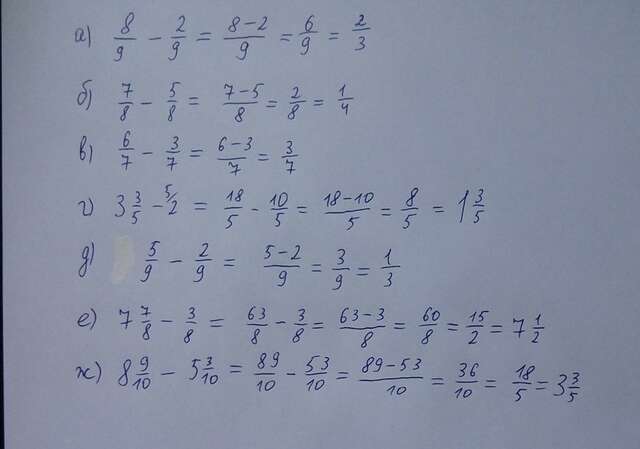 а) 8/9 − 2/9 = (8−2)/9 = 6/9 = 2/3
б) 7/8 − 5/8 = (7−5)/8 = 2/8 = 1/4
в) 6/7 − 3/7 = (6−3)/7 = 3/7
г) 3 3/5 − 5/2 = 18/5 − 10/5 = (18−10)/5 = 8/5 = 1 3/5
д) 5/9 − 2/9 = (5−2)/9 = 3/9 = 1/3
е) 7 7/8 − 3/8 = 63/8 − 3/8 = (63−3)/8 = 60/8 = 15/2 = 7 1/2
ж) 8 9/10 − 5 3/10 = 89/10 − 53/10 = (89−53)/10 = 36/10 = 18/5 = 3 3/5